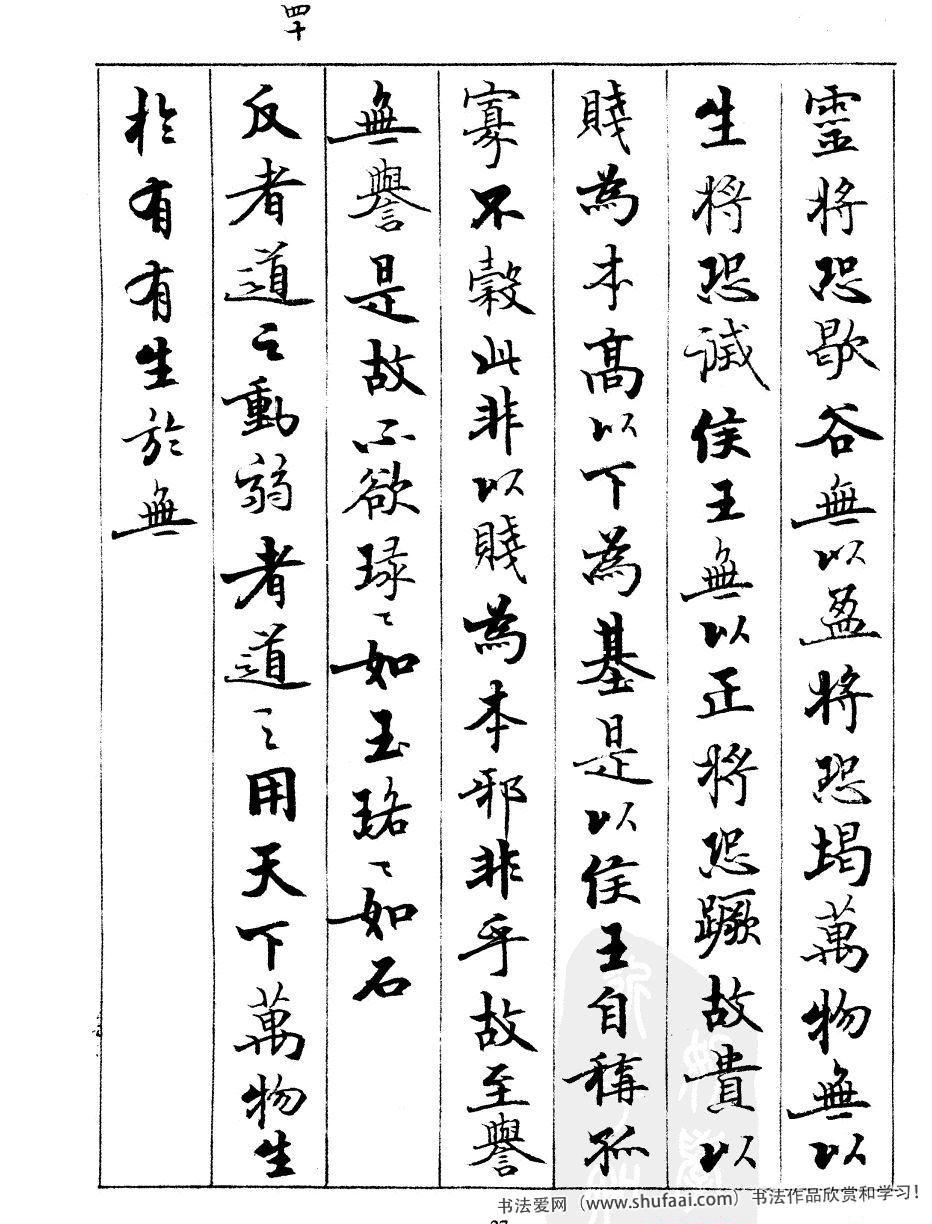 靈將恐歇谷無以盈將恐竭萬物無以
生將恐滅侯王無以正將恐蹶故貴以
賤為本高以下為基是以侯王自稱孤
寡不穀此非以賤為本邪非乎故至譽
無譽是故不欲琭〻如玉珞〻如石
四十
反者道之動弱者道之用天下萬物生
於有有生於無
书法爱网（www.shufaai.com）书法作品欣赏和学习！